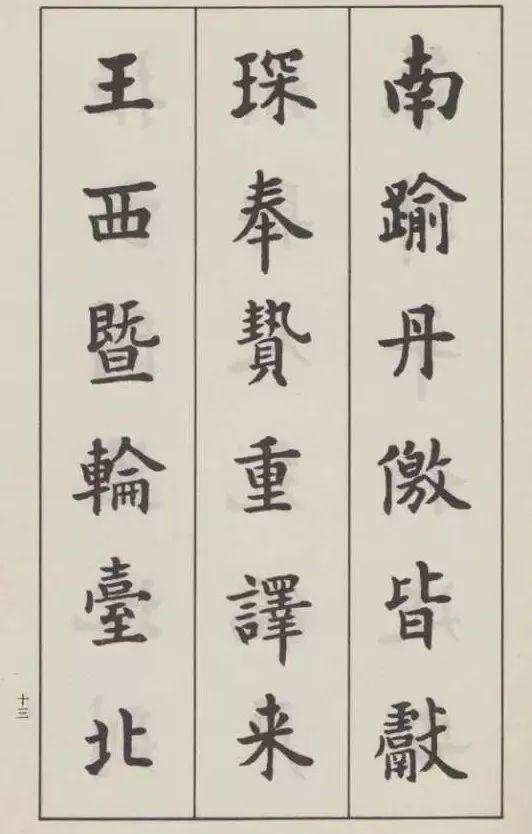 南踰丹儌皆獻
琛奉贄重譯来
王西暨輪臺北
十三